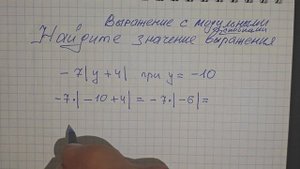 Выражение с модульными
Найдите значение выражения
- 7|y+4| при y = -10
-7·|-10+4| = -7·|-6| =